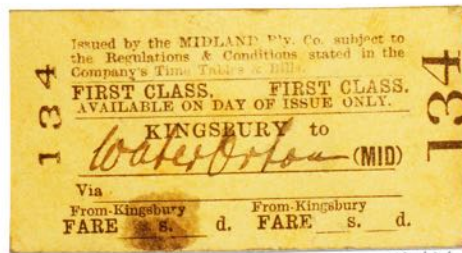 Issued by the MIDLAND Rly. Co. subject to
the Regulations & Conditions stated in the
Company's Time Tables & Bills.
FIRST CLASS. FIRST CLASS.
AVAILABLE ON DAY OF ISSUE ONLY.
KINGSBURY to
Water Orton (MID)
Via
From-Kingsbury From-Kingsbury
FARE s. d. FARE s. d.
134
134